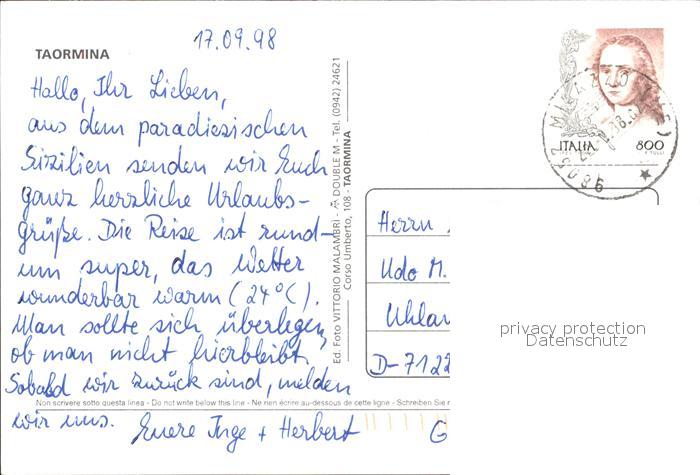 17.09.98
TAORMINA
Hallo, Ihr Lieben,
aus dem paradiesischen
Sizilien senden wir Euch
ganz herzliche Urlaubs-
grüße. Die Reise ist rund-
um super, das Wetter
wunderbar warm (24°C).
Man sollte sich überlegen,
ob man nicht hierbleibt.
Sobald wir zurück sind, melden
wir uns. Euere Inge + Herbert
Non scrivere sotto questa linea - Do not write below this line - Ne rien écrire au-dessous de cette ligne - Schreiben Sie
Ed. Foto VITTORIO MALAMBRI - DOUBLE M - Tel. (0942) 24621
Corso Umberto, 108 - TAORMINA
ITALIA 800
98057 MILAZZO (ME)
Herrn
Udo M.
Uhlan
D-7122
G
privacy protection
Datenschutz